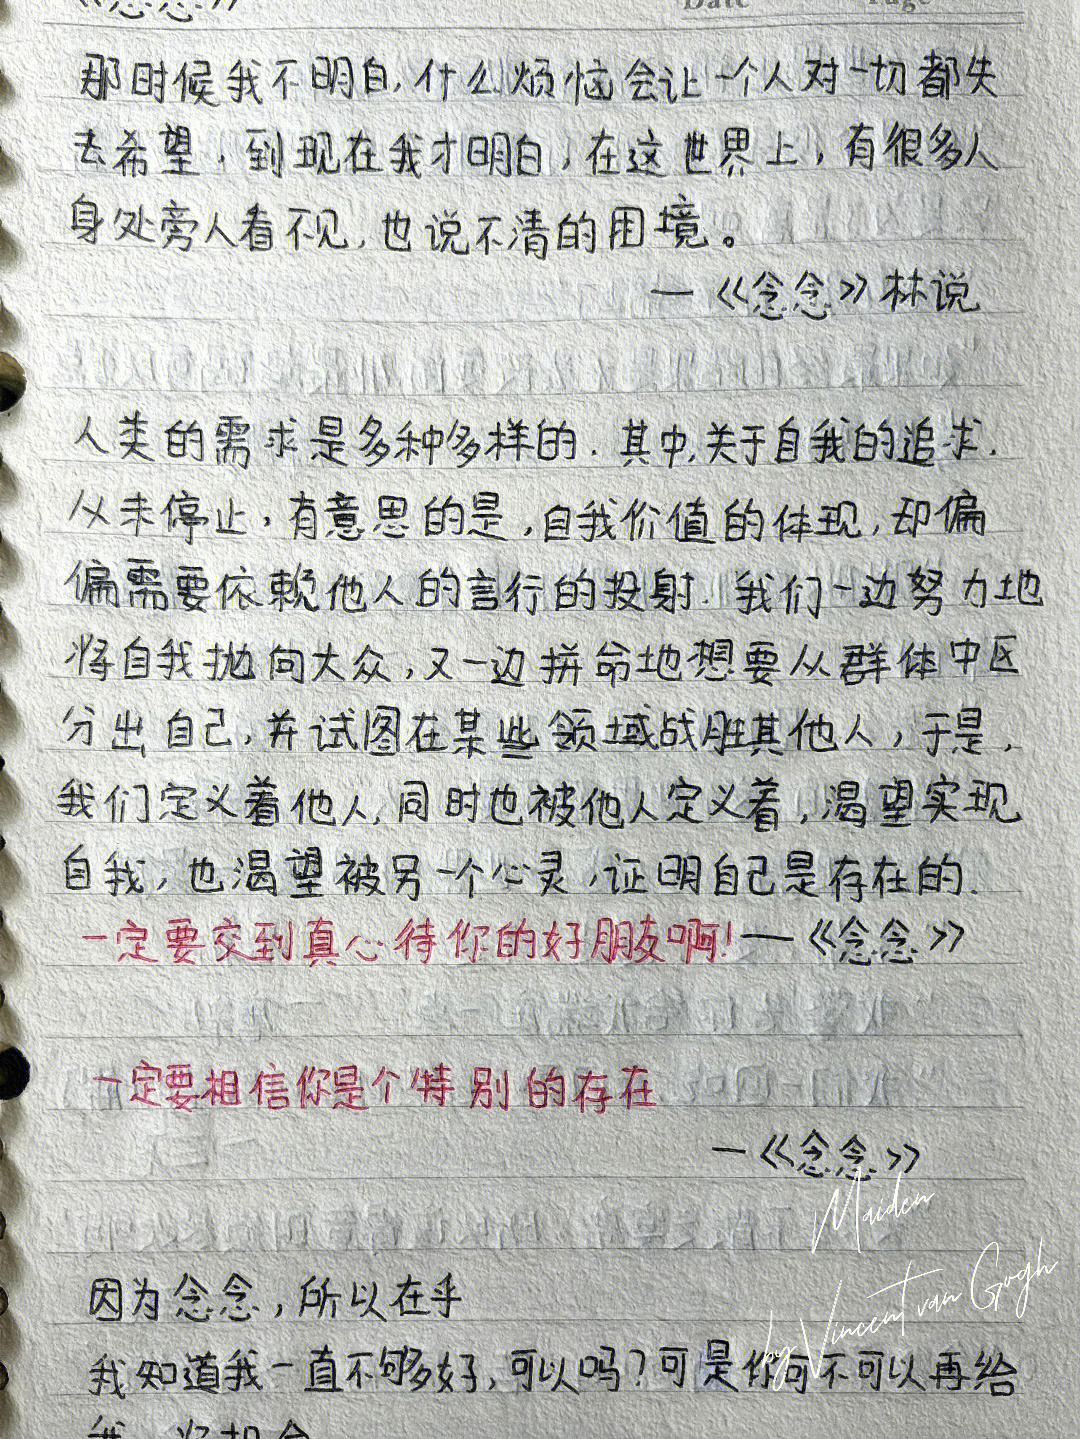 《念念》
Date Page
那时候我不明白,什么烦恼会让一个人对一切都失
去希望,到现在我才明白,在这世界上,有很多人
身处旁人看不见,也说不清的困境。
—《念念》林说
人类的需求是多种多样的.其中,关于自我的追求.
从未停止,有意思的是,自我价值的体现,却偏
偏需要依赖他人的言行的投射.我们一边努力地
将自我抛向大众,又一边拼命地想要从群体中区
分出自己,并试图在某些领域战胜其他人,于是,
我们定义着他人,同时也被他人定义着,渴望实现
自我,也渴望被另一个心灵,证明自己是存在的.
一定要交到真心待你的好朋友啊!—《念念》
一定要相信你是个特别的存在
—《念念》
Maiden
因为念念,所以在乎
by Vincent van Gogh
我知道我一直不够好,可以吗?可是你可不可以再给